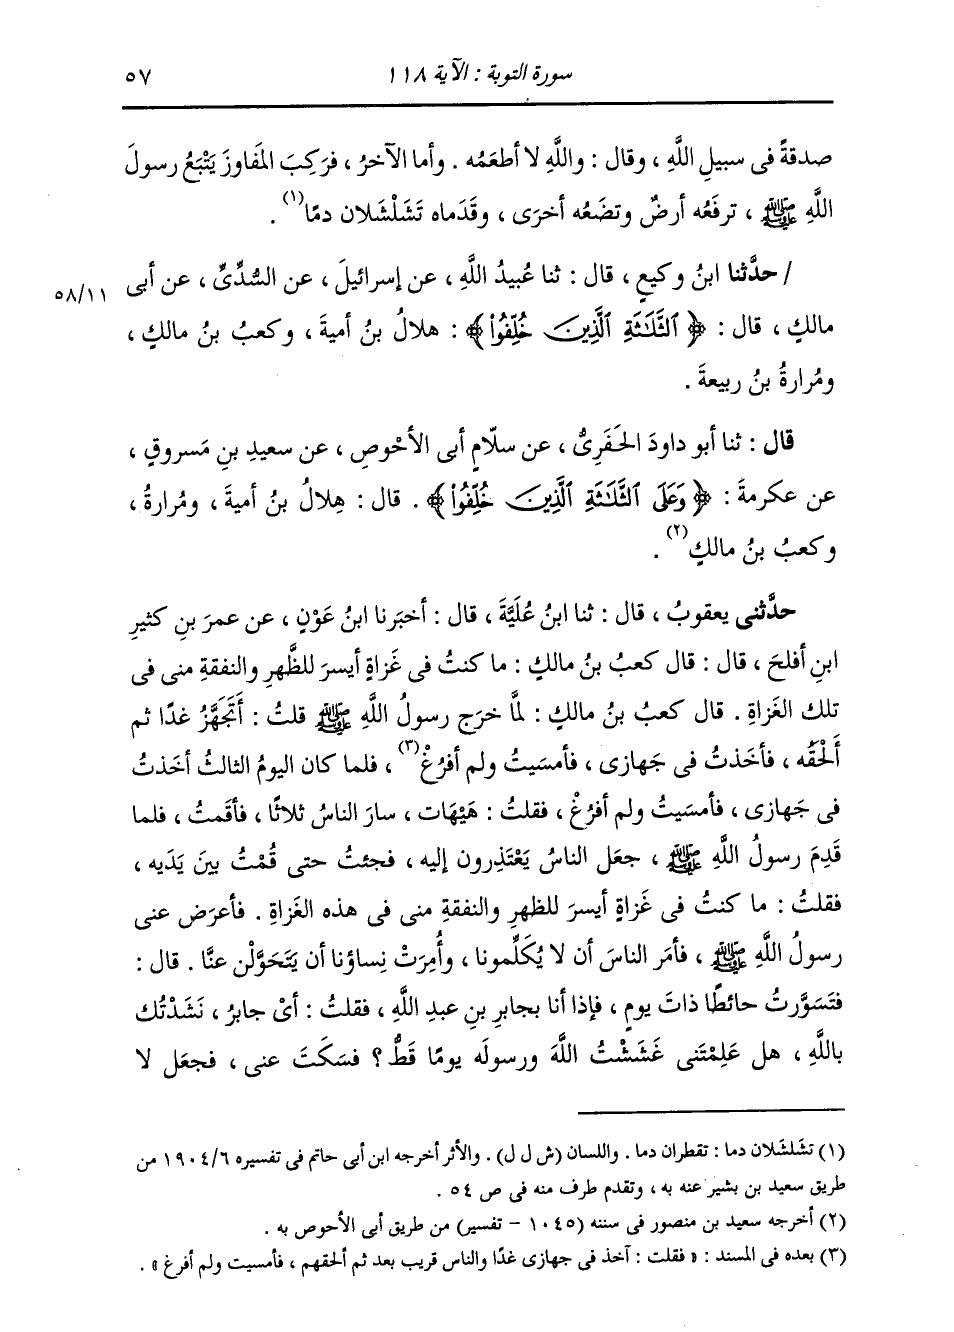 سورة التوبة : الآية ١١٨
٥٧
صدقةً فى سبيلِ اللَّهِ ، وقال : واللَّهِ لا أطعَمُه . وأما الآخرُ ، فرَكِبَ المَفاوزَ يَتْبَعُ رسولَ
اللَّهِ ﷺ ، ترفَعُه أرضٌ وتضَعُه أخرَى ، وقَدَماه تَشَلْشَلان دمًا(١) .
/ حدَّثنا ابنُ وكيعٍ ، قال : ثنا عُبيدُ اللَّهِ ، عن إسرائيلَ ، عن السُّدِّىِّ ، عن أبى
٥٨/١١
مالكٍ ، قال : ﴿ ٱلثَّلَـٰثَةِ ٱلَّذِينَ خُلِّفُواْ ﴾ : هلالُ بنُ أميةَ ، وكعبُ بنُ مالكٍ ،
ومُرارةُ بنُ ربيعةَ .
قال : ثنا أبو داودَ الحَفَرِىُّ ، عن سلّامٍ أبى الأحْوصِ ، عن سعيدِ بنِ مَسروقٍ ،
عن عكرمةَ : ﴿ وَعَلَى ٱلثَّلَـٰثَةِ ٱلَّذِينَ خُلِّفُواْ ﴾ . قال : هِلالُ بنُ أميةَ ، ومُرارةُ ،
وكعبُ بنُ مالكٍ(٢) .
حدَّثنى يعقوبُ ، قال : ثنا ابنُ عُلَيَّةَ ، قال : أخبَرنا ابنُ عَوْنٍ ، عن عمرَ بنِ كثيرِ
ابنِ أفلحَ ، قال : قال كعبُ بنُ مالكٍ : ما كنتُ فى غَزاةٍ أيسرَ للظَّهرِ والنفقةِ منى فى
تلك الغَزاةِ . قال كعبُ بنُ مالكٍ : لمَّا خرَج رسولُ اللَّهِ ﷺ قلتُ : أَتَجَهَّزُ غدًا ثم
أَلْحَقُه ، فأخَذتُ فى جَهازى ، فأمسَيتُ ولم أفرُغْ(٣) ، فلما كان اليومُ الثالثُ أخَذتُ
فى جَهازى ، فأمسَيتُ ولم أفرُغْ ، فقلتُ : هَيْهَات ، سارَ الناسُ ثلاثًا ، فأقَمتُ ، فلما
قَدِمَ رسولُ اللَّهِ ﷺ ، جعَل الناسُ يَعْتَذِرون إليه ، فجئتُ حتى قُمْتُ بينَ يَدَيه ،
فقلتُ : ما كنتُ فى غَزاةٍ أيسرَ للظهرِ والنفقةِ منى فى هذه الغَزاةِ . فأعرَض عنى
رسولُ اللَّهِ ﷺ ، فأمَر الناسَ أن لا يُكَلِّمونا ، وأُمِرَتْ نِساؤنا أن يَتَحَوَّلْن عنَّا . قال :
فتَسَوَّرتُ حائطًا ذاتَ يومٍ ، فإذا أنا بجابرِ بنِ عبدِ اللَّهِ ، فقلتُ : أىْ جابرُ ، نَشَدْتُك
باللَّهِ ، هل عَلِمْتَنى غَشَشْتُ اللَّهَ ورسولَه يومًا قَطُّ ؟ فسَكَتَ عنى ، فجعَل لا
(١) تشَلشَلان دما : تقطران دما . واللسان (ش ل ل) . والأثر أخرجه ابن أبى حاتم فى تفسيره ١٩٠٤/٦ من
طريق سعيد بن بشير عنه به ، وتقدم طرف منه فى ص ٥٤ .
(٢) أخرجه سعيد بن منصور فى سننه (١٠٤٥ - تفسير) من طريق أبى الأحوص به .
(٣) بعده فى المسند : « فقلت : آخذ فى جهازى غدًا والناس قريب بعد ثم ألحقهم ، فأمسيت ولم أفرغ » .